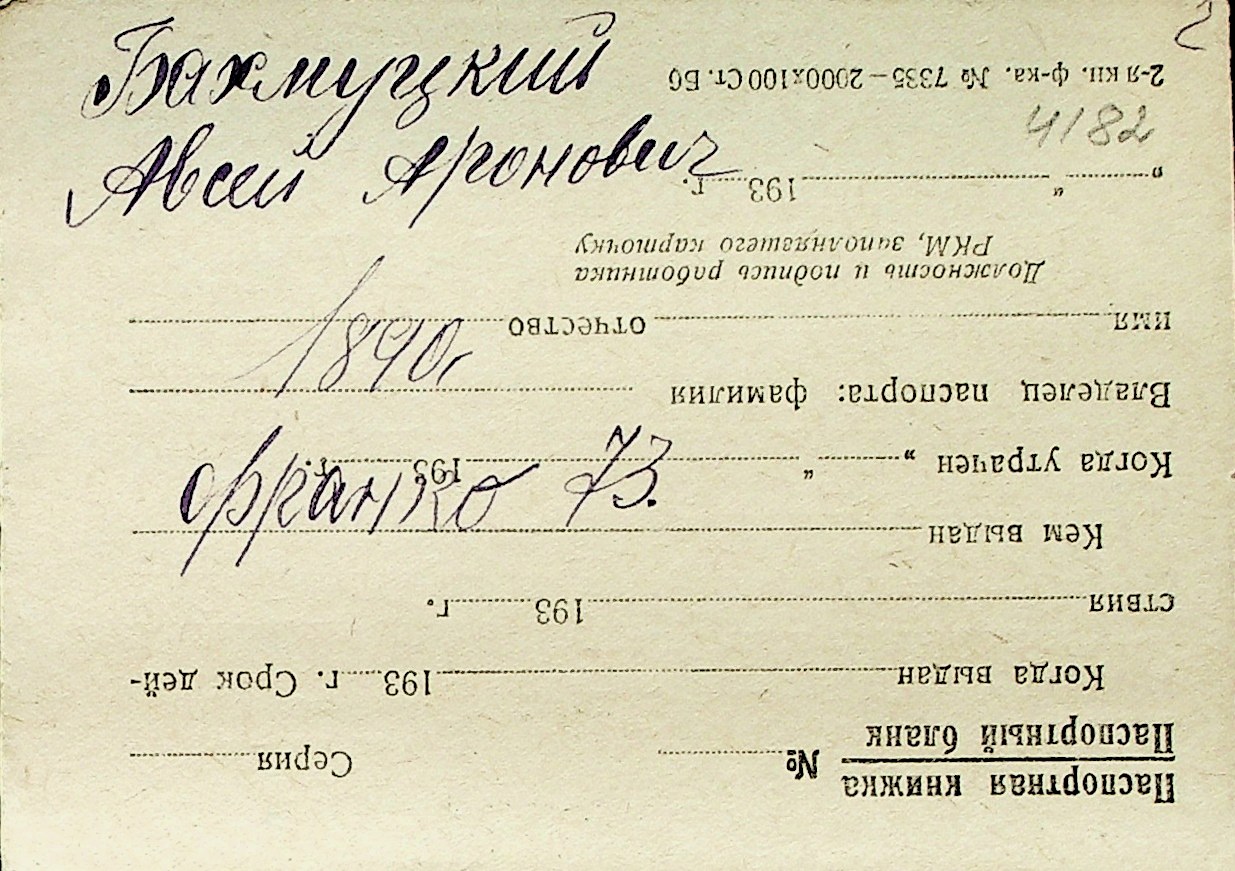 2
Бахмуцкий
Авсей Аронович
1890 г
Франко 73.
4182
Паспортная книжка
Паспортный бланк
№ Серия
Когда выдан 193 г. Срок дей-
ствия 193 г.
Кем выдан
Когда утрачен „ “ 193 г.
Владелец паспорта: фамилия
имя отчество
Должность и подпись работника
РКМ, заполнявшего карточку
„ “ 193 г.
2-я кн. ф-ка. № 7335—2000х100 Ст. Б6